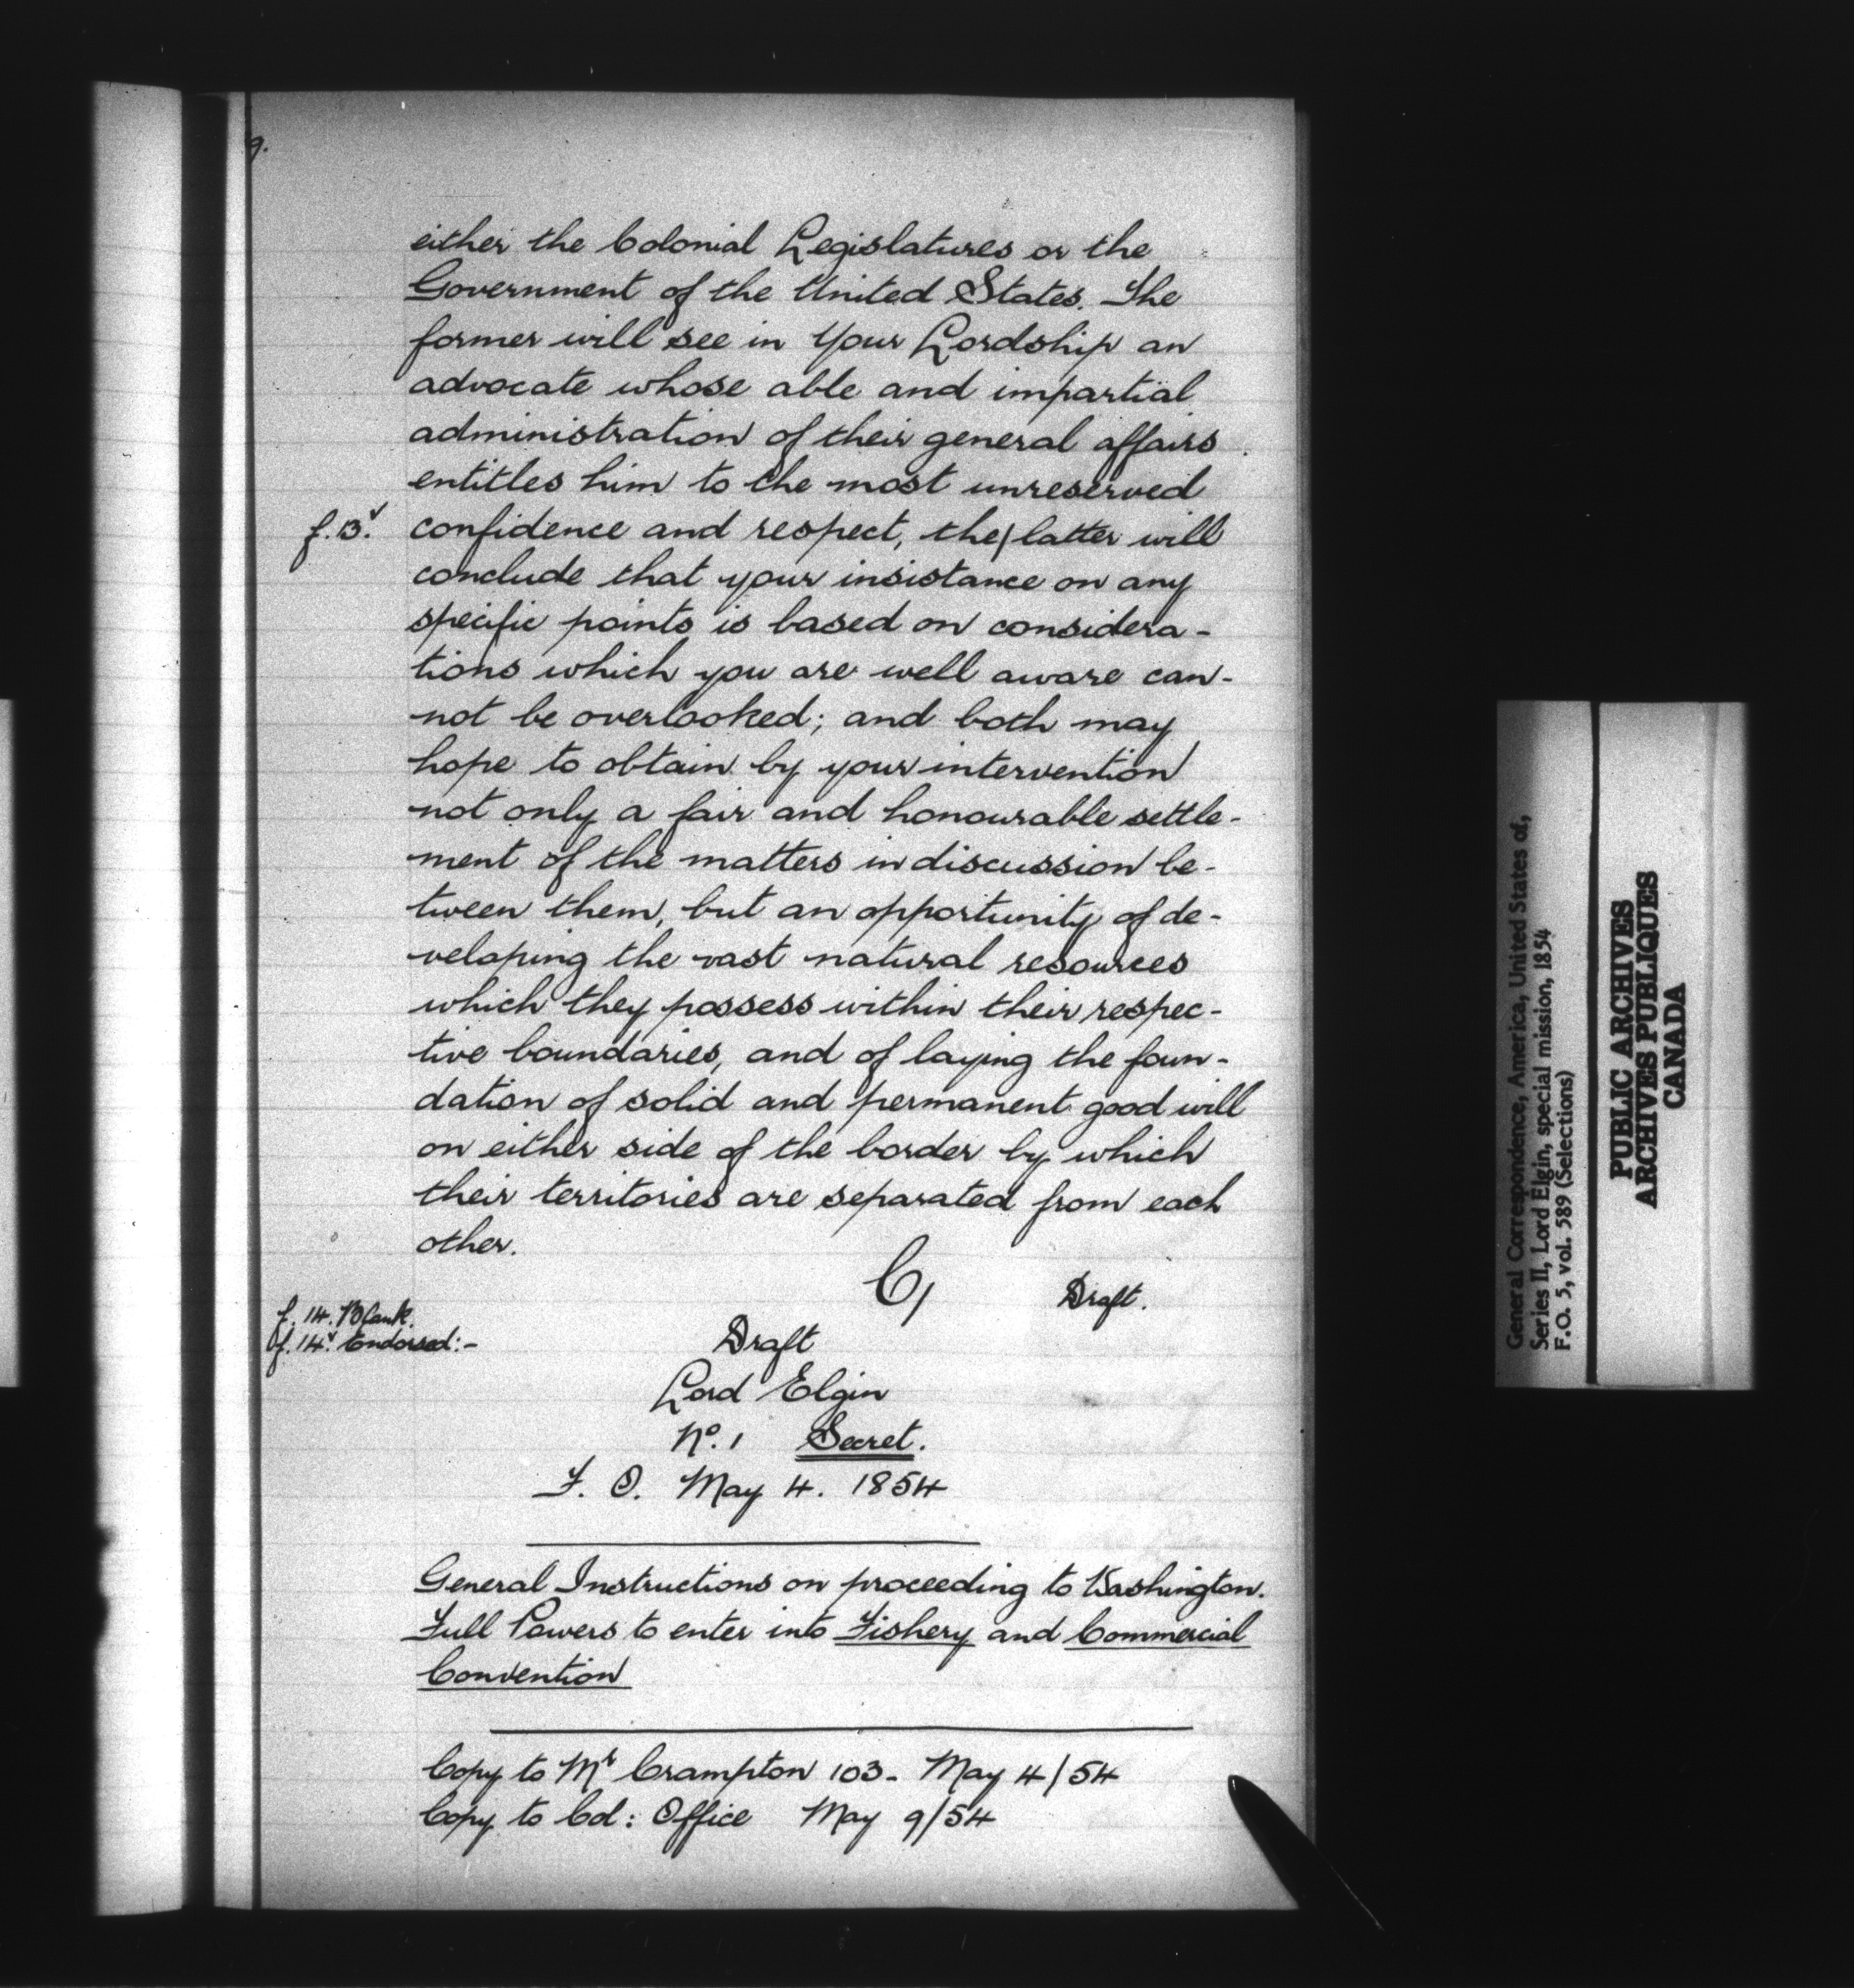 9.
either the Colonial Legislatures or the
Government of the United States. The
former will see in Your Lordship an
advocate whose able and impartial
administration of their general affairs
entitles him to the most unreserved
f. 13.v confidence and respect, the/latter will
conclude that your insistance on any
specific points is based on considera-
tions which you are well aware can-
not be overlooked; and both may
hope to obtain by your intervention
not only a fair and honourable settle-
ment of the matters in discussion be-
tween them, but an opportunity of de-
veloping the vast natural resources
which they possess within their respec-
tive boundaries, and of laying the foun-
dation of solid and permanent good will
on either side of the border by which
their territories are separated from each
other.
C/ Draft.
f. 14. Blank.
f. 14.v Endorsed:-
Draft
Lord Elgin
No. 1 Secret.
F. O. May 4. 1854
General Instructions on proceeding to Washington.
Full Powers to enter into Fishery and Commercial
Convention
Copy to Mr Crampton 103- May 4/54
Copy to Col: Office May 9/54
General Correspondence, America, United States of,
Series II, Lord Elgin, special mission, 1854
F.O. 5, vol. 589 (Selections)
PUBLIC ARCHIVES
ARCHIVES PUBLIQUES
CANADA